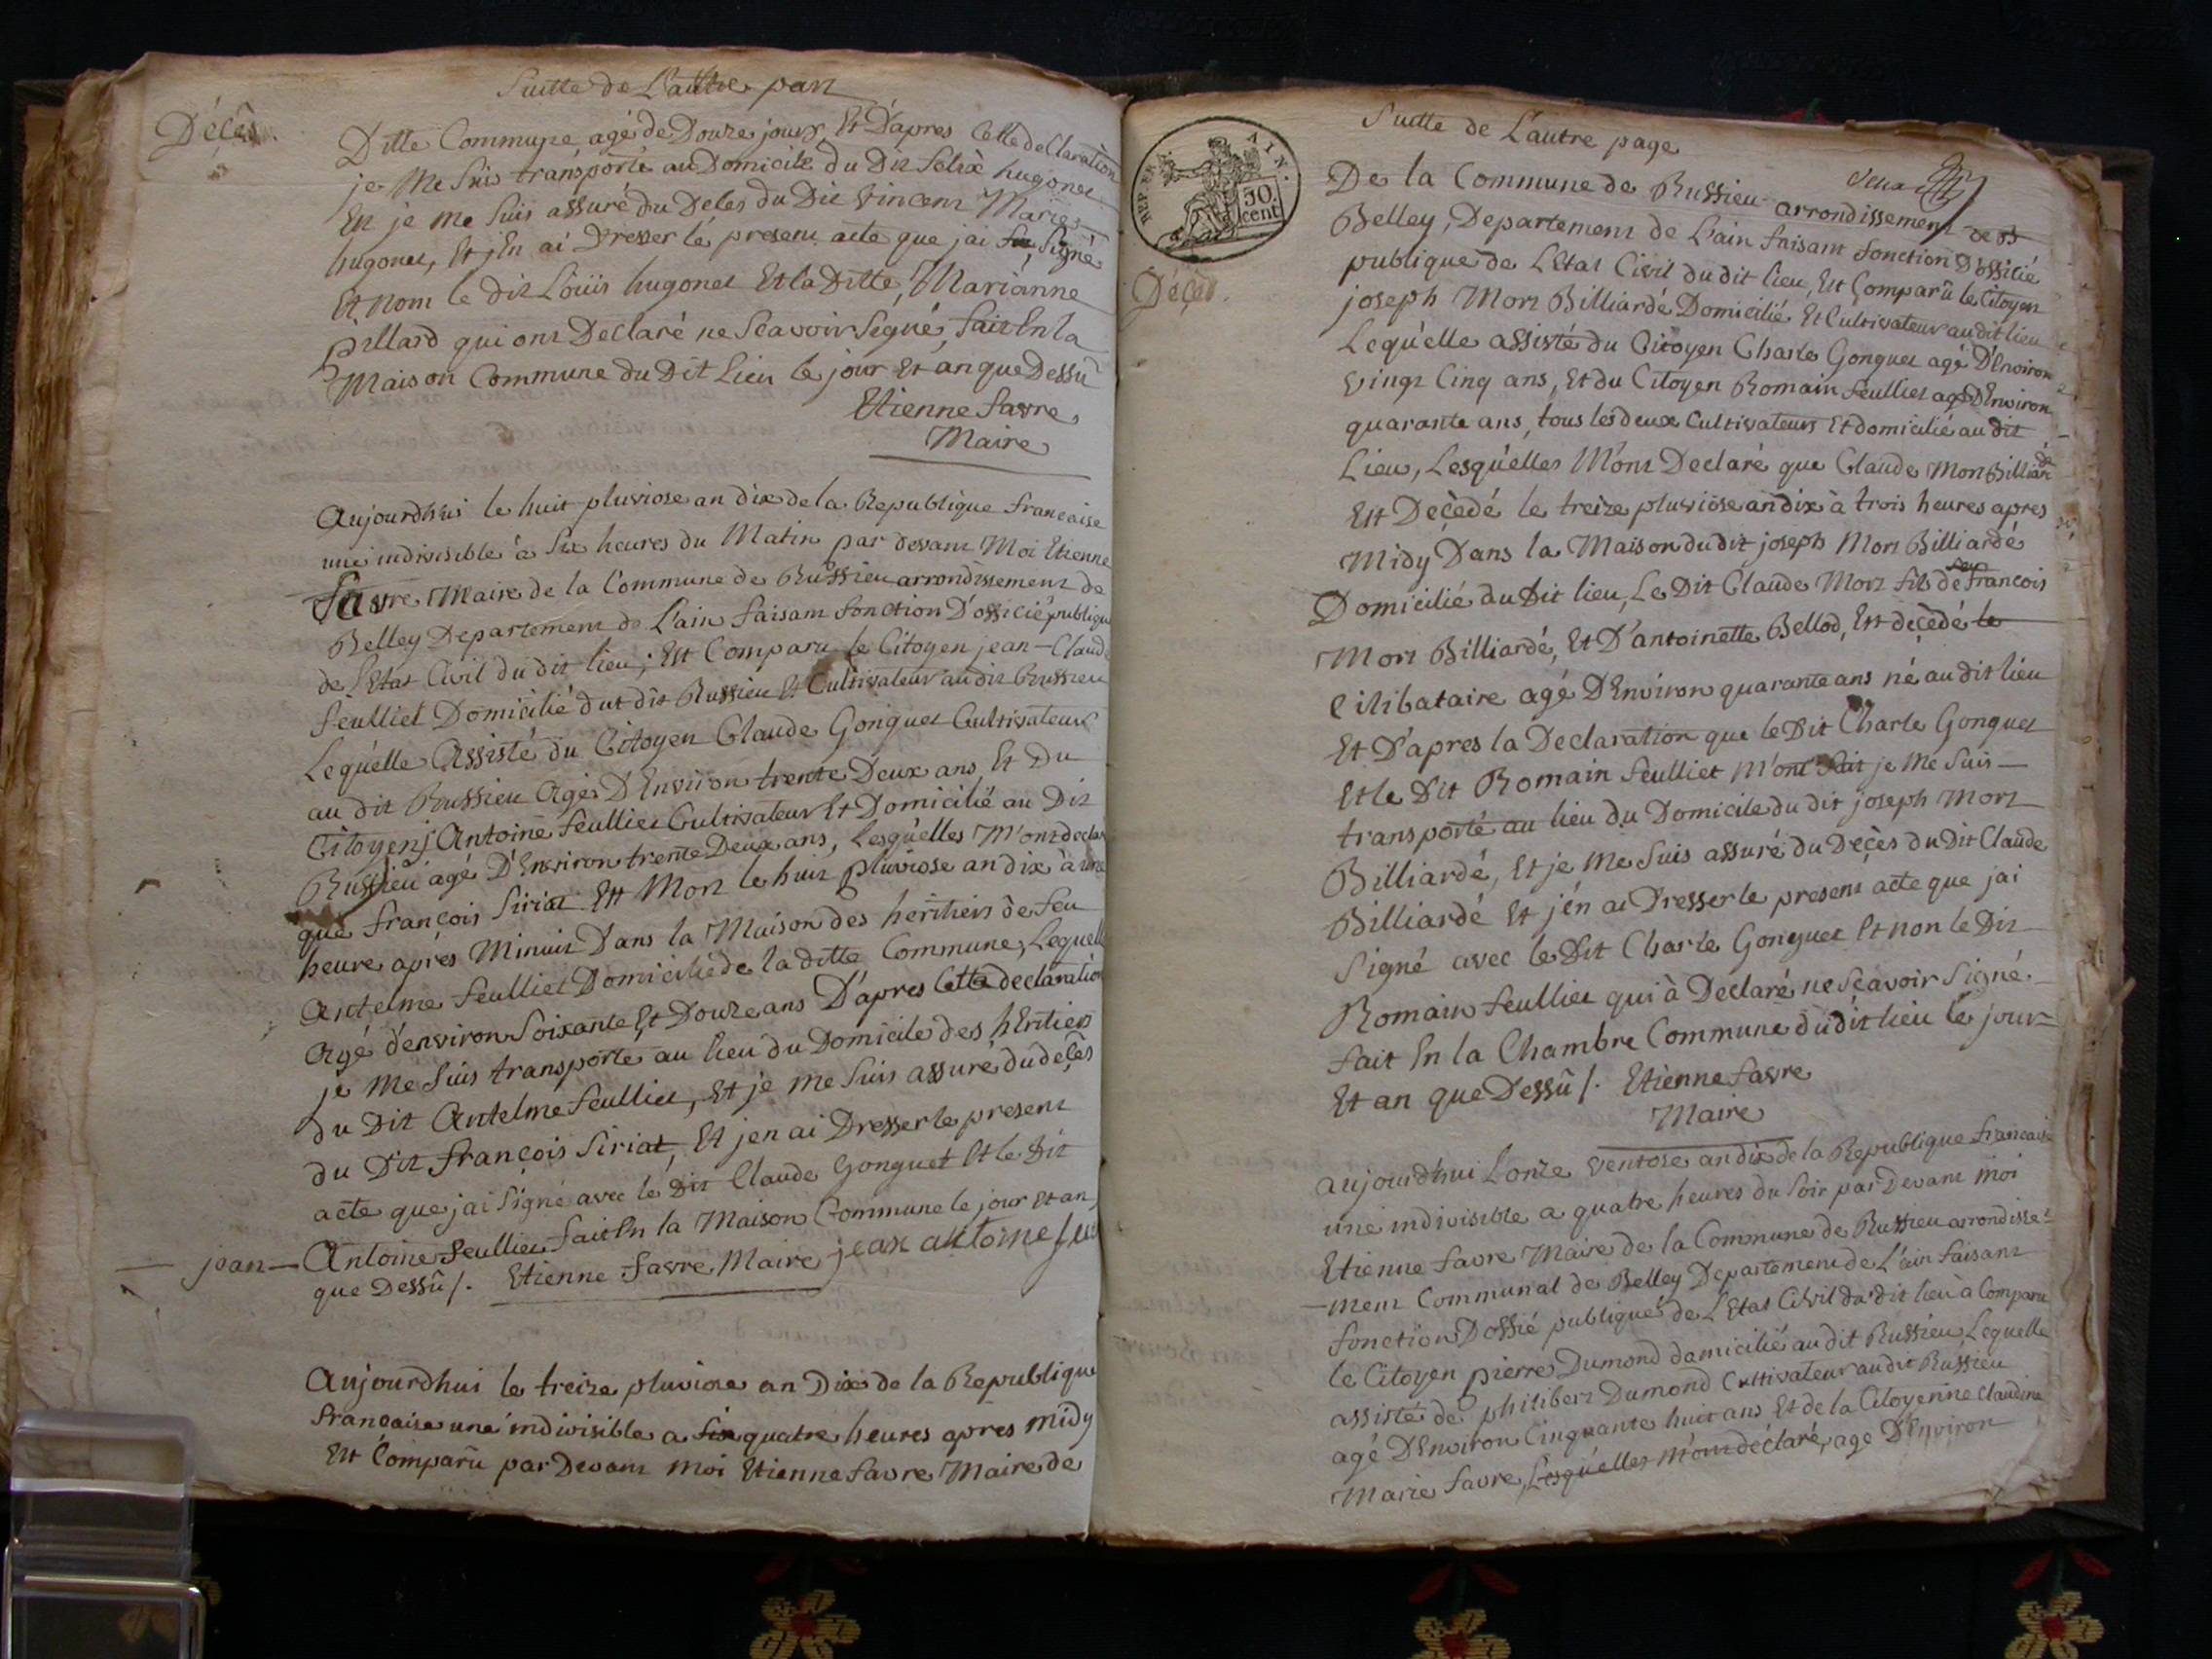 Suitte de L'autre part
Décès.
Ditte Commune agé de Douze jours, Et D'apres Cette declaration
je Me Suis transporté au Domicile du Dit felix hugonet
Et je me Suis assuré du Deces du Dit Vincent Marie
hugonet, Et j'En ai Dresser le present acte que jai Signé
Et nom le dit Loüis hugonet Et la Ditte, Marianne
pillard qui ont Declaré ne Scavoir Signé, fait En la
Maison Commune du Dit Lieu le jour Et an que Dessu
Etienne favre
Maire
Aujourdhui le huit pluviose an dix de la Republique francaise
une indivisible à Six heures du Matin par devant Moi Etienne
favre Maire de la Commune de Russieu arrondissement de
Belley Departement de L'ain faisant fonction D'officié publique
de L'Etat Civil du dit lieu; Est Comparu le Citoyen jean-Claude
feulliet Domicilié dut dit Russieu Et Cultivateur au dit Russieu
Lequélle Assisté du Citoyen Claude Gonguet Cultivateur
au dit Russieu Agé D'Environ trente Deux ans Et du
Citoyen Antoine feulliet Cultivateur Et Domicilié au Dit
Russieu agé D'Environ trente Deux ans, Lesquélles M'ont declaré
que françois Siriat Est Mort le huit pluviose an dix à une
heure apres Minuit Dans la Maison des heritiers de feu
Antelme feulliet Domicilié de la ditte Commune, Lequelle
Agé d'environ Soixante Et Douze ans D'apres Cette declaration
je Me Suis transporté au lieu du Domicile des hEritiers
du Dit Antelme feulliet, Et je me Suis assuré du décès
du Dit françois Siriat, Et jen ai Dresser le present
acte que jai Signé avec le Dit Claude Gonguet Et le Dit
jean — Antoine feulliet fait En la Maison Commune le jour et an
que Dessû /. Etienne favre Maire jean antoine feu
Aujourdhui le treize pluviose an Dix de la Republique
francaise une indivisible a six quatre heures apres midy
Est Comparû par Devant moi Etienne favre Maire de
Suitte de L'autre page
REP. FRA. AIN.
50
cent.
Décès.
De la Commune de Russieu arrondissement de
Belley, Departement de L'ain faisant fonction D'officié
publique de L'Etat Civil du dit lieu, Est Comparû le Citoyen
joseph Mort Billiardé Domicilié Et Cultivateur au dit lieu
Lequ'elle assisté du Citoyen Charle Gonguet agé D'Environ
vingt Cinq ans, Et du Citoyen Romain feulliet agé D'Environ
quarante ans, tous les deux Cultivateurs Et domicilié au dit
Lieu, Lesqu'elles M'ont Declaré que Claude Mort Billiardé
Est Décédé le treize pluviose an dix à trois heures apres
Midy Dans la Maison du dit joseph Mort Billiardé
Domicilié au Dit lieu, Le Dit Claude Mort fils de feu francois
Mort Billiardé, Et D'antoinette Bellod, Est décédé le
Cilibataire agé D'Environ quarante ans né au dit lieu
Et D'apres la Declaration que le Dit Charle Gonguet
Et le Dit Romain feulliet M'ont fait je Me Suis —
transporté au lieu du Domicile du dit joseph Mort
Billiardé, Et je Me Suis assuré du Décès du Dit Claude
Billiardé Et j'én ai Dresser le present acte que jai
Signé avec le Dit Charle Gonguet Et non le Dit
Romain feulliet qui à Declaré ne Scavoir Signé.
fait En la Chambre Commune du dit lieu le jour
Et an que Dessû /. Etienne favre
Maire
aujourdhui L'onze ventose an dix de la Republique francaise
une indivisible a quatre heures du Soir par Devant moi
Etienne favre Maire de la Commune de Russieu arrondisse-
-ment Communal de Belley Departement de L'ain faisant
fonction D'offié publique de L'Etat Civil du dit lieu à Comparu
le Citoyen pierre Dumond domicilié au dit Russieu, Lequelle
assisté de philibert Dumond Cultivateur au dit Russieu
agé D'Environ Cinquante huit ans Et de la Citoyenne Claudine
Marie favre, Lesquélles M'ont déclaré, agé D'Environ